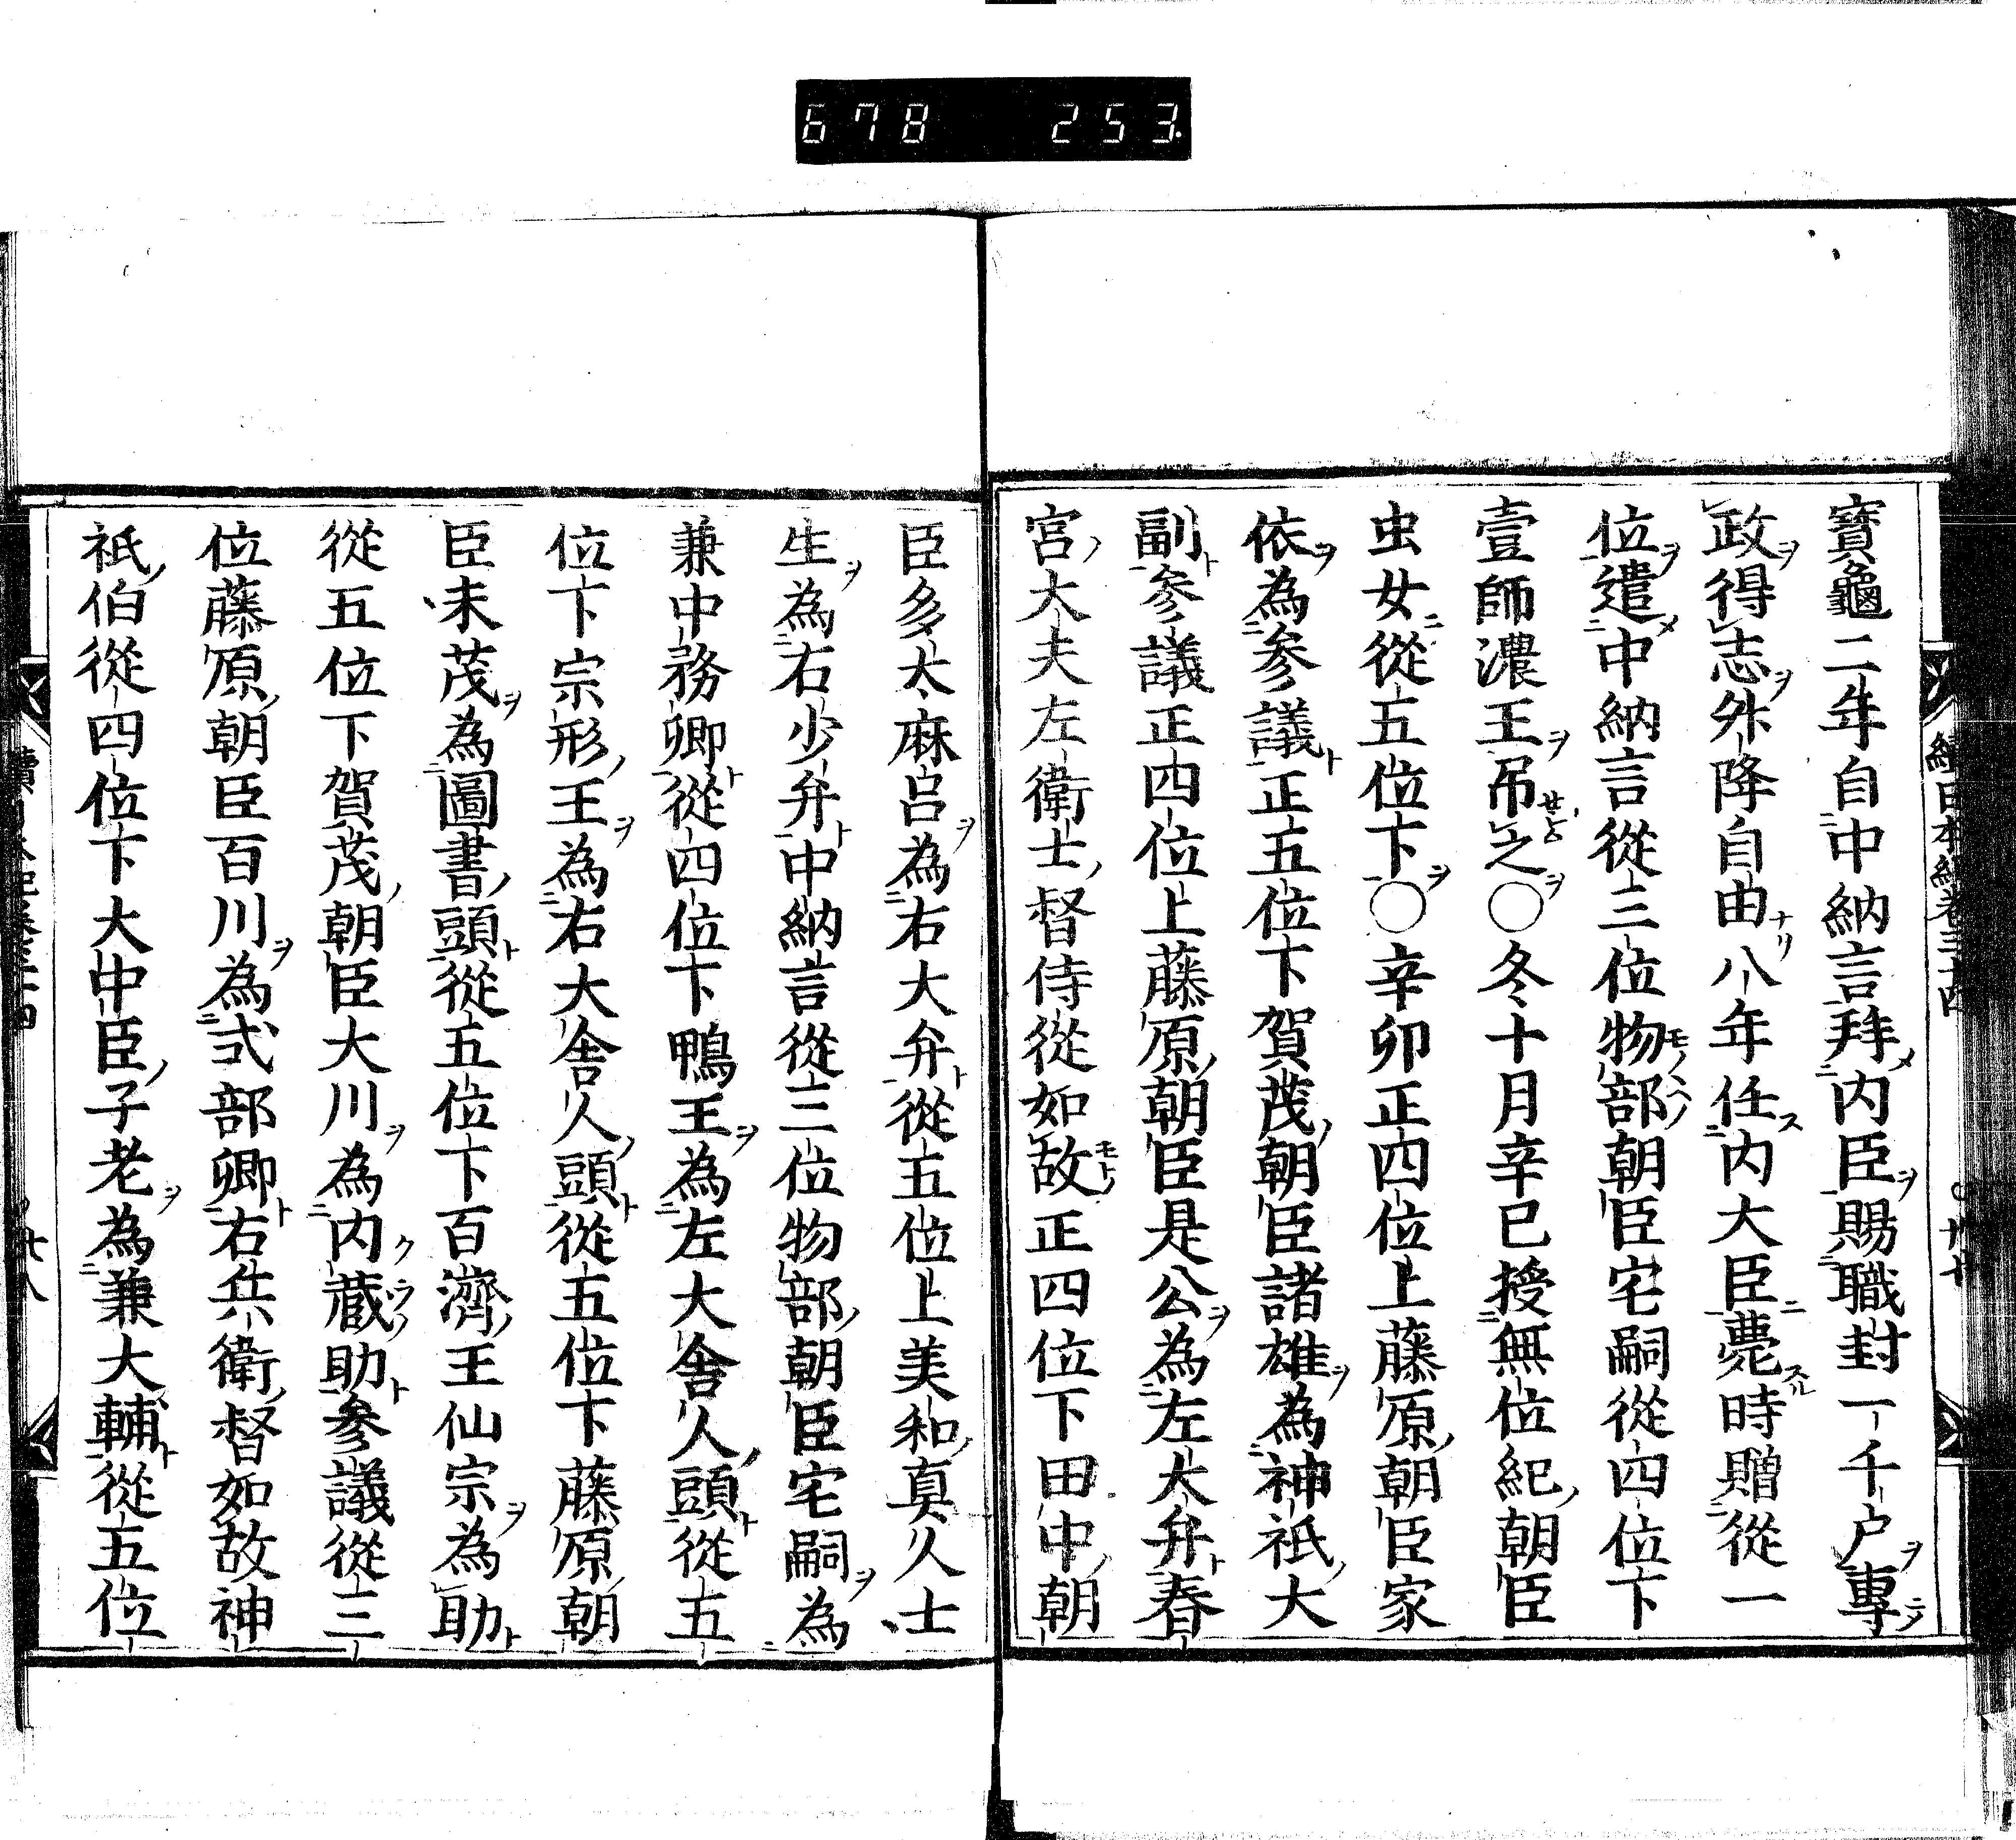 678 253.
寶龜二年自中納言拜内臣賜職封一千户專
政得志外降自由八年任内大臣薨時贈從一
位遣中納言從三位物部朝臣宅嗣從四位下
壹師濃王吊之〇冬十月辛巳授無位紀朝臣
虫女從五位下〇辛卯正四位上藤原朝臣家
依為参議正五位下賀茂朝臣諸雄為神祇大
副参議正四位上藤原朝臣是公為左大弁春
宮大夫左衛士督侍從如故正四位下田中朝
臣多太麻呂為右大弁從五位上美和真人士
生為右少弁中納言從三位物部朝臣宅嗣為
兼中務卿從四位下鴨王為左大舎人頭從五
位下宗形王為右大舎人頭從五位下藤原朝
臣末茂為圖書頭從五位下百濟王仙宗為助
從五位下賀茂朝臣大川為内蔵助参議從三
位藤原朝臣百川為式部卿右兵衛督如故神
祇伯從四位下大中臣子老為兼大輔從五位